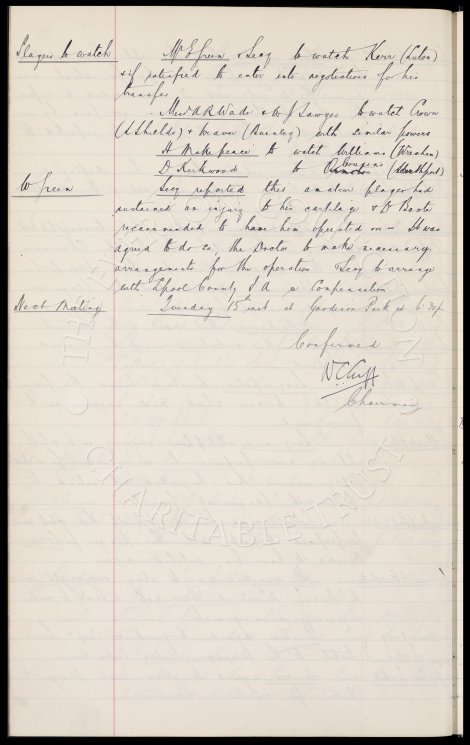 Players to watch
Mr E Green & Secy to watch Kerr (Luton)
& if satisfied to enter into negotiations for his
transfer
Messrs A R Wade & W J Sawyer to watch Crown
(S Shields) & Weaver (Burnley) with similar powers
H Makepeace to watch Williams (Wrexham)
D Kirkwood to Cousens (Southport)
W Green
Secy reported this amateur player had
sustained an injury to his cartilage & Dr Baxter
recommended to have him operated on - It was
agreed to do so, the Doctor to make necessary
arrangements for the operation Secy to arrange
with L'pool County F A re Compensation
Next Meeting
Tuesday 15th inst at Goodison Park at 6.30 p.
Confirmed
W C Cuff
Chairman
© THE EVERTON
COLLECTION
CHARITABLE TRUST